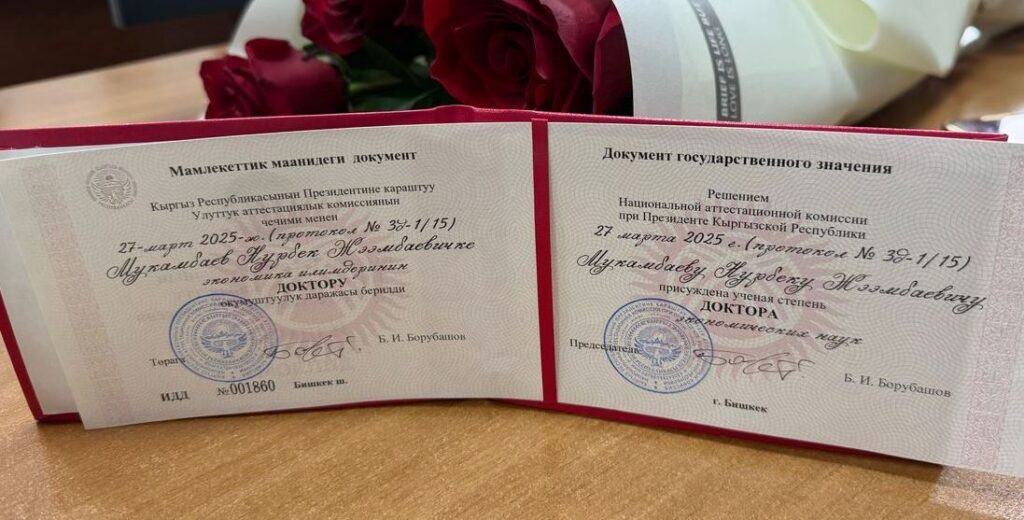 BRIEF IS LIFE BUT
LOVE IS LONG
Мамлекеттик маанидеги документ
Кыргыз Республикасынын Президентине караштуу
Улуттук аттестациялык комиссиянын
чечими менен
27-март 2025-ж. (протокол № 3д-1/15)
Мукамбаев Нурбек Жээмбаевичке
экономика илимдеринин
ДОКТОРУ
окумуштуулук даражасы берилди
Төрага
Б. И. Борубашов
ИДД №001860 Бишкек ш.
Документ государственного значения
Решением
Национальной аттестационной комиссии
при Президенте Кыргызской Республики
27 марта 2025 г. (протокол № 3д-1/15)
Мукамбаеву Нурбеку Жээмбаевичу
присуждена ученая степень
ДОКТОРА
экономических наук
Председатель
Б. И. Борубашов
г. Бишкек